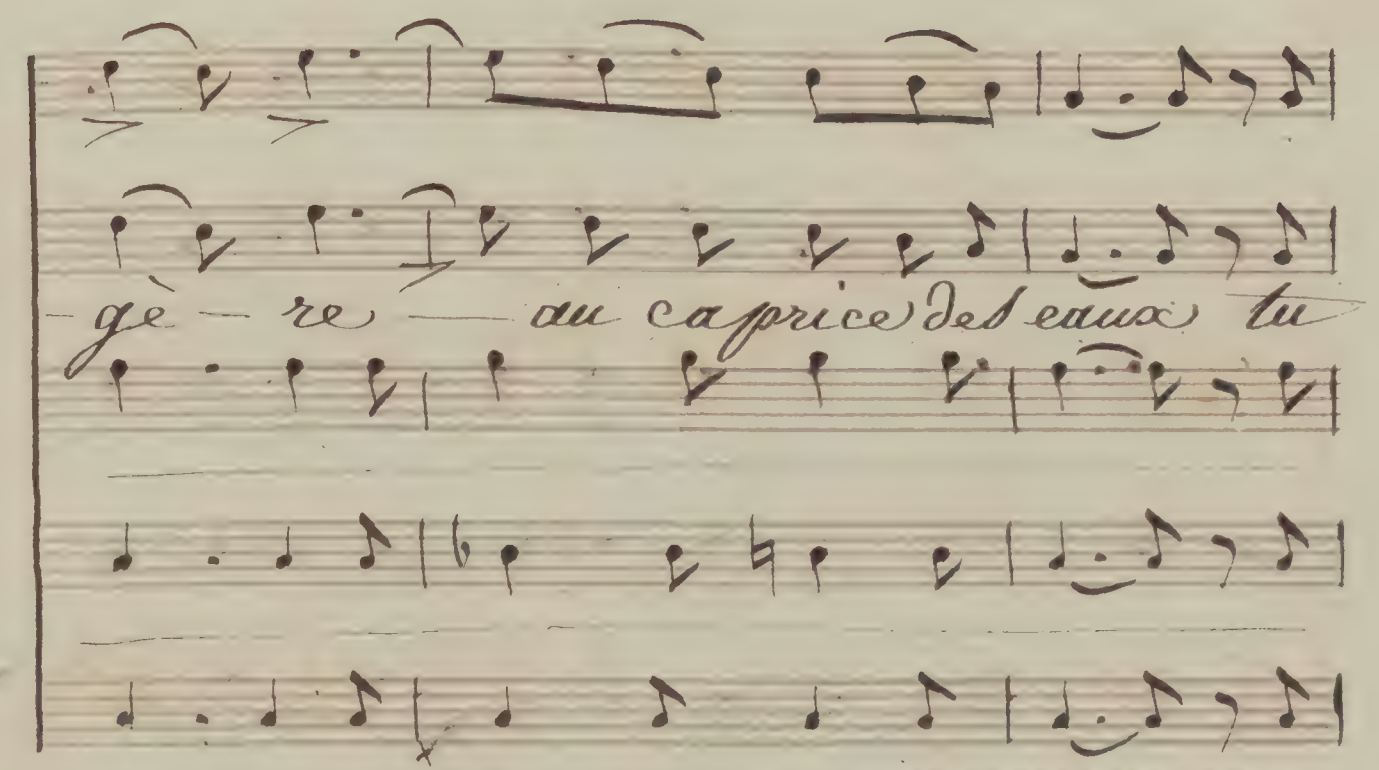 - gè - re - au caprice des eaux tu